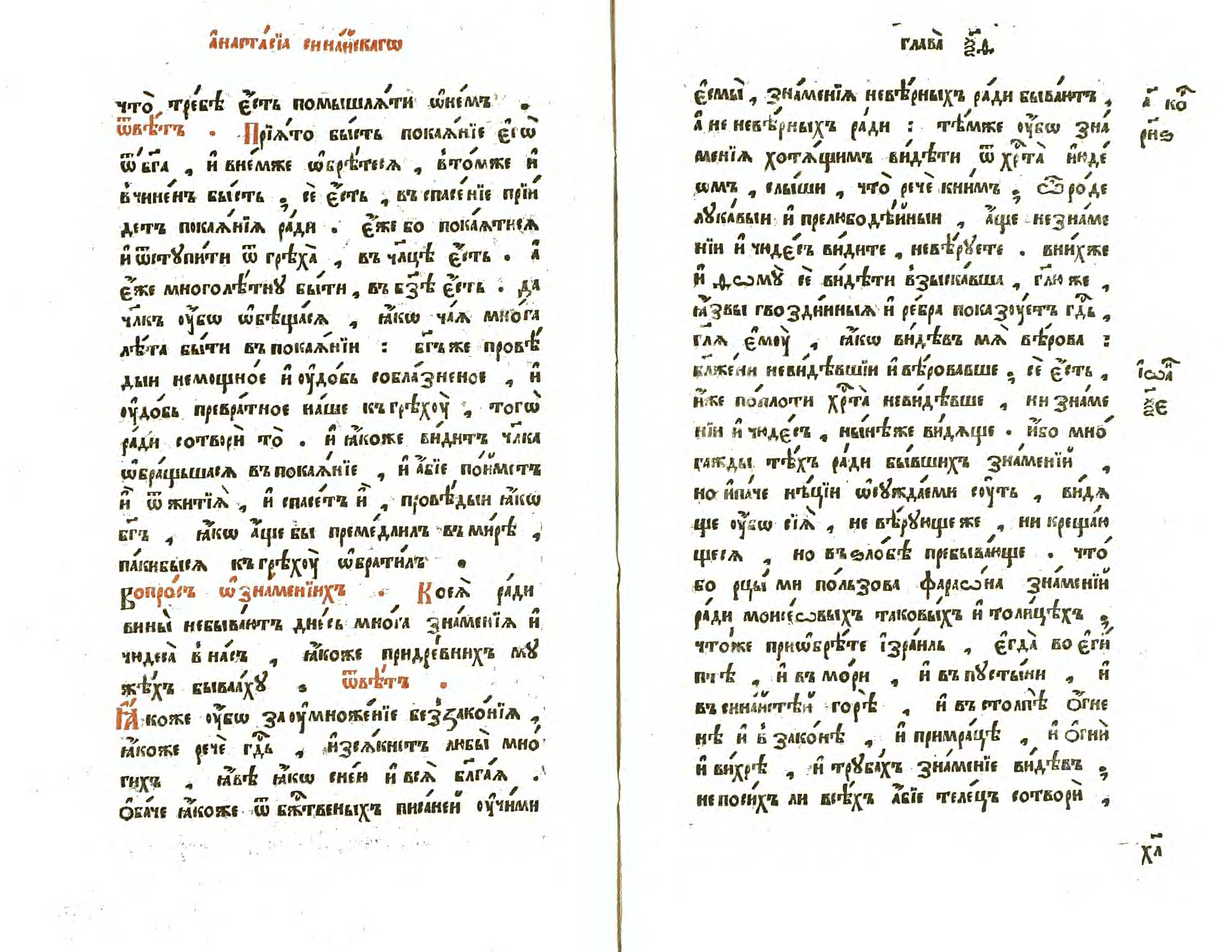 а҆наста́сїа сина́йскагѡ
что̀ тре́бѣ є҆́сть помышлѧ́ти ѡ҆не́мъ .
ѿвѣ́тъ . Прїѧ́то бы́сть покаѧ́нїе є҆гѡ̀
ѿ бг҃а , и҆ вне́мже ѡ҆брѣ́тесѧ , вто́мже и҆
вчине́нъ бы́сть ; сѐ є҆́сть , въ спасе́нїе прїи́
детъ покаѧ́нїѧ ра́ди . є҆́же бо покаѧ́тисѧ
и҆ ѿступи́ти ѿ грѣха̀ , въ чл҃цѣ є҆́сть . а҆
є҆́же многолѣ́тну бы́ти , въ бз҃ѣ є҆́сть . да
чл҃къ ᲂу҆́бѡ ѡ҆бѣща́сѧ , ꙗ҆́кѡ ча́ѧ мно́га
лѣ́та бы́ти въ покаѧ́нїи : бг҃ъ же провѣ́
дыи немощно́е и҆ ᲂу҆до́бь собла́зненое , и҆
ᲂу҆до́бь превра́тное на́ше къ грѣхꙋ̀ , тогѡ̀
ра́ди сотворѝ то̀ . и҆ ꙗ҆́коже ви́дитъ чл҃ка
ѡ҆бра́щьшасѧ въ покаѧ́нїе , и҆ а҆́бїе по́иметъ
и҆̀ ѿ житїѧ̀ , и҆ спасе́тъ и҆̀ , провѣ́дыи ꙗ҆́кѡ
бг҃ъ , ꙗ҆́кѡ а҆́ще бы преме́длилъ въ ми́рѣ ,
па́кибысѧ къ грѣхꙋ̀ ѡ҆брати́лъ .
Вопро́съ ѡ҆ зна́менїихъ . Коеѧ̀ ра́ди
вины̀ небыва́ютъ дне́сь мно́га зна́менїѧ и҆
чюдеса̀ в на́съ , ꙗ҆́коже придре́внихъ му
же́хъ быва́аху . ѿвѣ́тъ .
Ꙗ҆́коже ᲂу҆́бѡ заᲂу҆множе́нїе беззако́нїѧ ,
ꙗ҆́коже речѐ гдⷭ҇ь , и҆зсѧ́кнетъ любы̀ мно́
гихъ , ꙗ҆́вѣ ꙗ҆́кѡ сне́ю и҆ всѧ̀ блага́ѧ .
Ѻ҆ба́че ꙗ҆́коже ѿ бжⷭ҇твеныхъ писа́ней ᲂу҆чи́ми
глава̀ ѯ҃д .
є҆смы̀ , зна́менїѧ невѣ́рныхъ ра́ди быва́ютъ ,
а҆ не невѣ́рныхъ ра́ди : тѣ́мже ᲂу҆́бѡ зна́
менїѧ хотѧ́щимъ ви́дѣти ѿ хрⷭ҇та̀ и҆юде́
ѡмъ , слы́ши , что̀ речѐ кни́мъ ; Ѽ ро́де
лука́выи и҆ прелюбодѣ́йныи , а҆́ще незна́ме
нїи и҆ чюде́съ ви́дите , невѣ́руете . вни́хже
и҆ ѳѡмꙋ̀ сѐ ви́дѣти взыска́вша , гл҃ю же ,
ꙗ҆́звы гвозди́нныѧ и҆ ре́бра показꙋ́етъ гдⷭ҇ь ,
гл҃ѧ є҆мꙋ̀ , ꙗ҆́кѡ ви́дѣвъ мѧ̀ вѣ́рова :
блаже́ни неви́дѣвшїи и҆ вѣ́ровавше ; сѐ є҆́сть ,
и҆́же попло́ти хрⷭ҇та̀ неви́дѣвше , ни зна́ме
нїи и҆ чюде́съ , ны́нѣже ви́дѧще . и҆́бо мно́
гажды тѣ́хъ ра́ди бы́вшихъ зна́менїй ,
но и҆па́че нѣ́цїи ѡ҆сужда́еми сꙋ́ть , ви́дѧ
ще ᲂу҆́бѡ сїѧ̀ , не вѣ́рующе же , ни креща́ю
щесѧ , но въ ѕло́бѣ пребыва́юще . что́
бо рцы́ ми по́льзова фараѡ́на зна́менїй
ра́ди моисе́ѡвыхъ таковы́хъ и҆ толи́цѣхъ ;
что́же приѡбрѣ́те і҆зра́иль , є҆гда̀ во є҆гѵ́
птѣ , и҆ въ мо́ри , и҆ въ пусты́ни , и҆
въ сина́йстѣй горѣ̀ , и҆ въ столпѣ̀ ѻ҆́гне
нѣ и҆ в зако́нѣ , и҆ примра́цѣ , и҆ ѻ҆́гнѝ
и҆ ви́хрѣ , и҆ труба́хъ зна́менїе ви́дѣвъ ;
непоси́хъ ли всѣ́хъ а҆́бїе теле́цъ сотворѝ ,
а҃ ко
ринѳ
і҆ѡа
ѯ҃е
хл҃